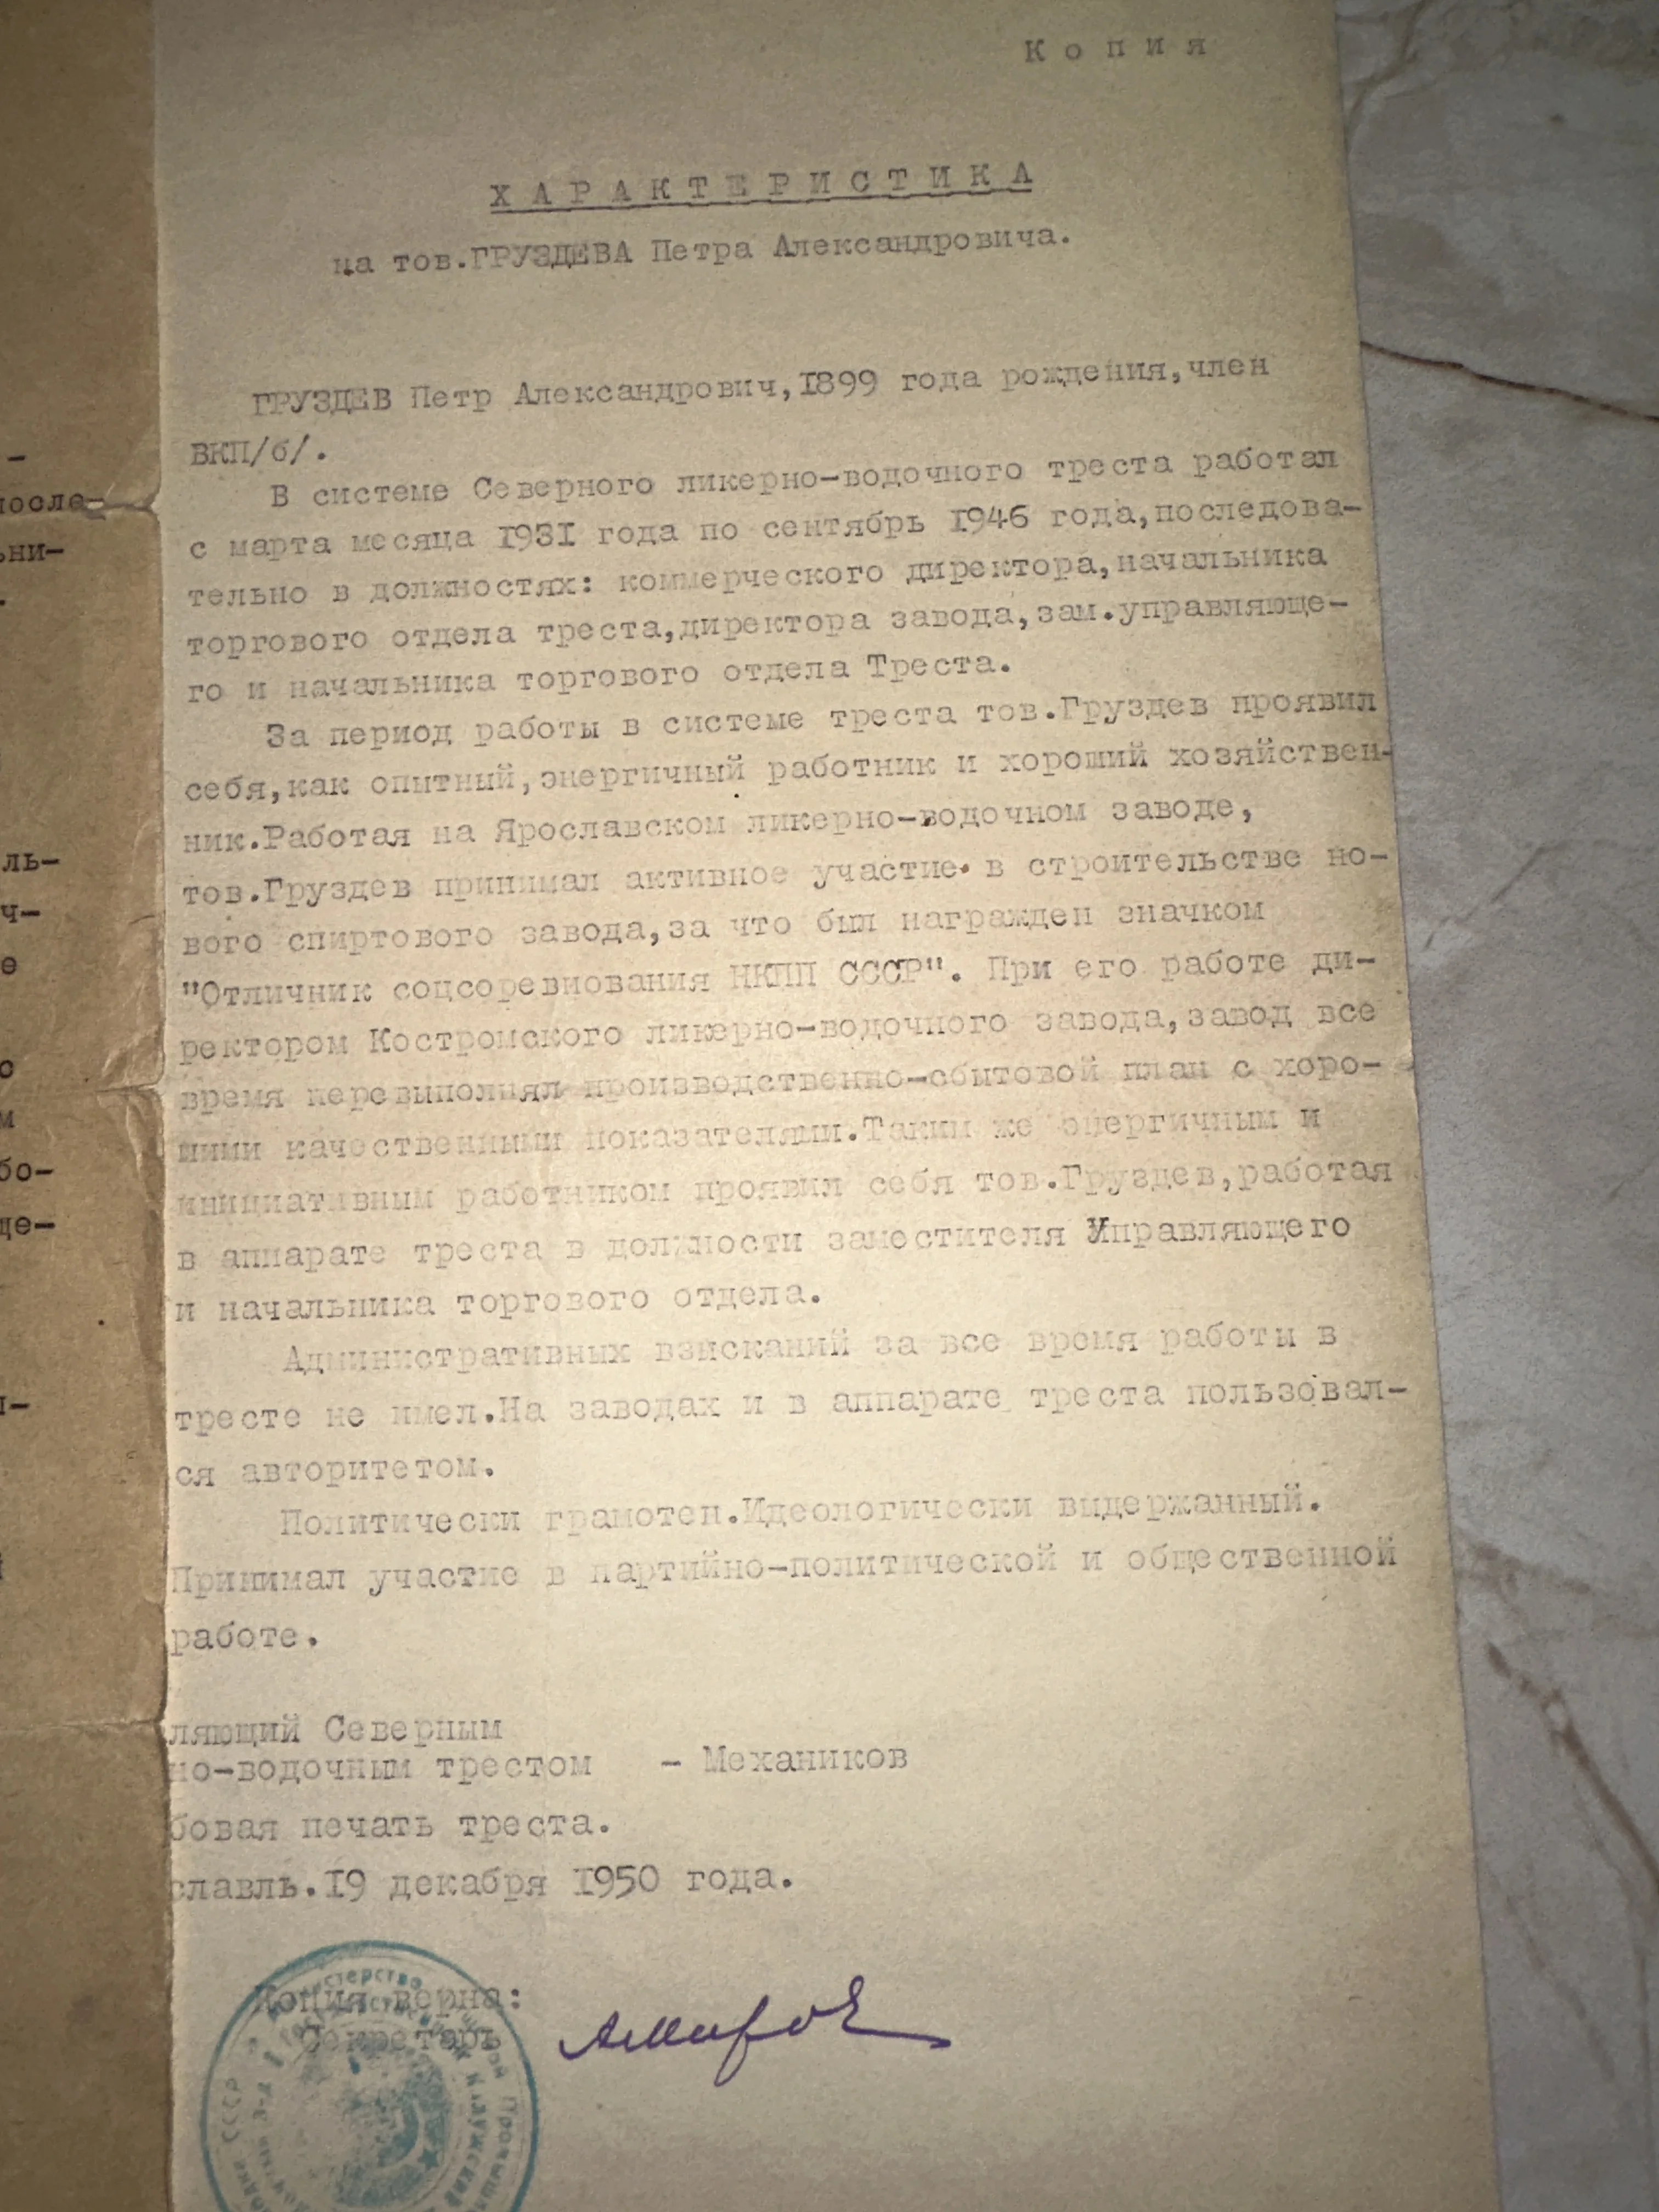 Копия
ХАРАКТЕРИСТИКА
на тов.ГРУЗДЕВА Петра Александровича.
ГРУЗДЕВ Петр Александрович,1899 года рождения,член
ВКП/б/.
В системе Северного ликерно-водочного треста работал
с марта месяца 1931 года по сентябрь 1946 года,последова-
тельно в должностях: коммерческого директора,начальника
торгового отдела треста,директора завода,зам.управляюще-
го и начальника торгового отдела Треста.
За период работы в системе треста тов.Груздев проявил
себя,как опытный,энергичный работник и хороший хозяйствен-
ник.Работая на Ярославском ликерно-водочном заводе,
тов.Груздев принимал активное участие в строительстве но-
вого спиртового завода,за что был награжден значком
"Отличник соцсоревнования НКПП СССР". При его работе ди-
ректором Костромского ликерно-водочного завода,завод все
время перевыполнял производственно-сбытовой план с хоро-
шими качественными показателями.Таким же энергичным и
инициативным работником проявил себя тов.Груздев,работая
в аппарате треста в должности заместителя Управляющего
и начальника торгового отдела.
Административных взысканий за все время работы в
тресте не имел.На заводах и в аппарате треста пользовал-
ся авторитетом.
Политически грамотен.Идеологически выдержанный.
Принимал участие в партийно-политической и общественной
работе.
ляющий Северным
но-водочным трестом - Механиков
бовая печать треста.
славль.19 декабря 1950 года.
Копия верна:
Секретарь
-
после-
ьни-
.
ль-
ч-
е
о
м
бо-
ще-
-